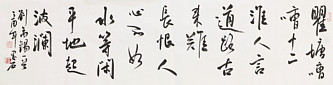 瞿塘嘈
嘈十二
滩人言
道路古
来难
长恨人
心不如
水等闲
平地起
波澜
刘禹锡